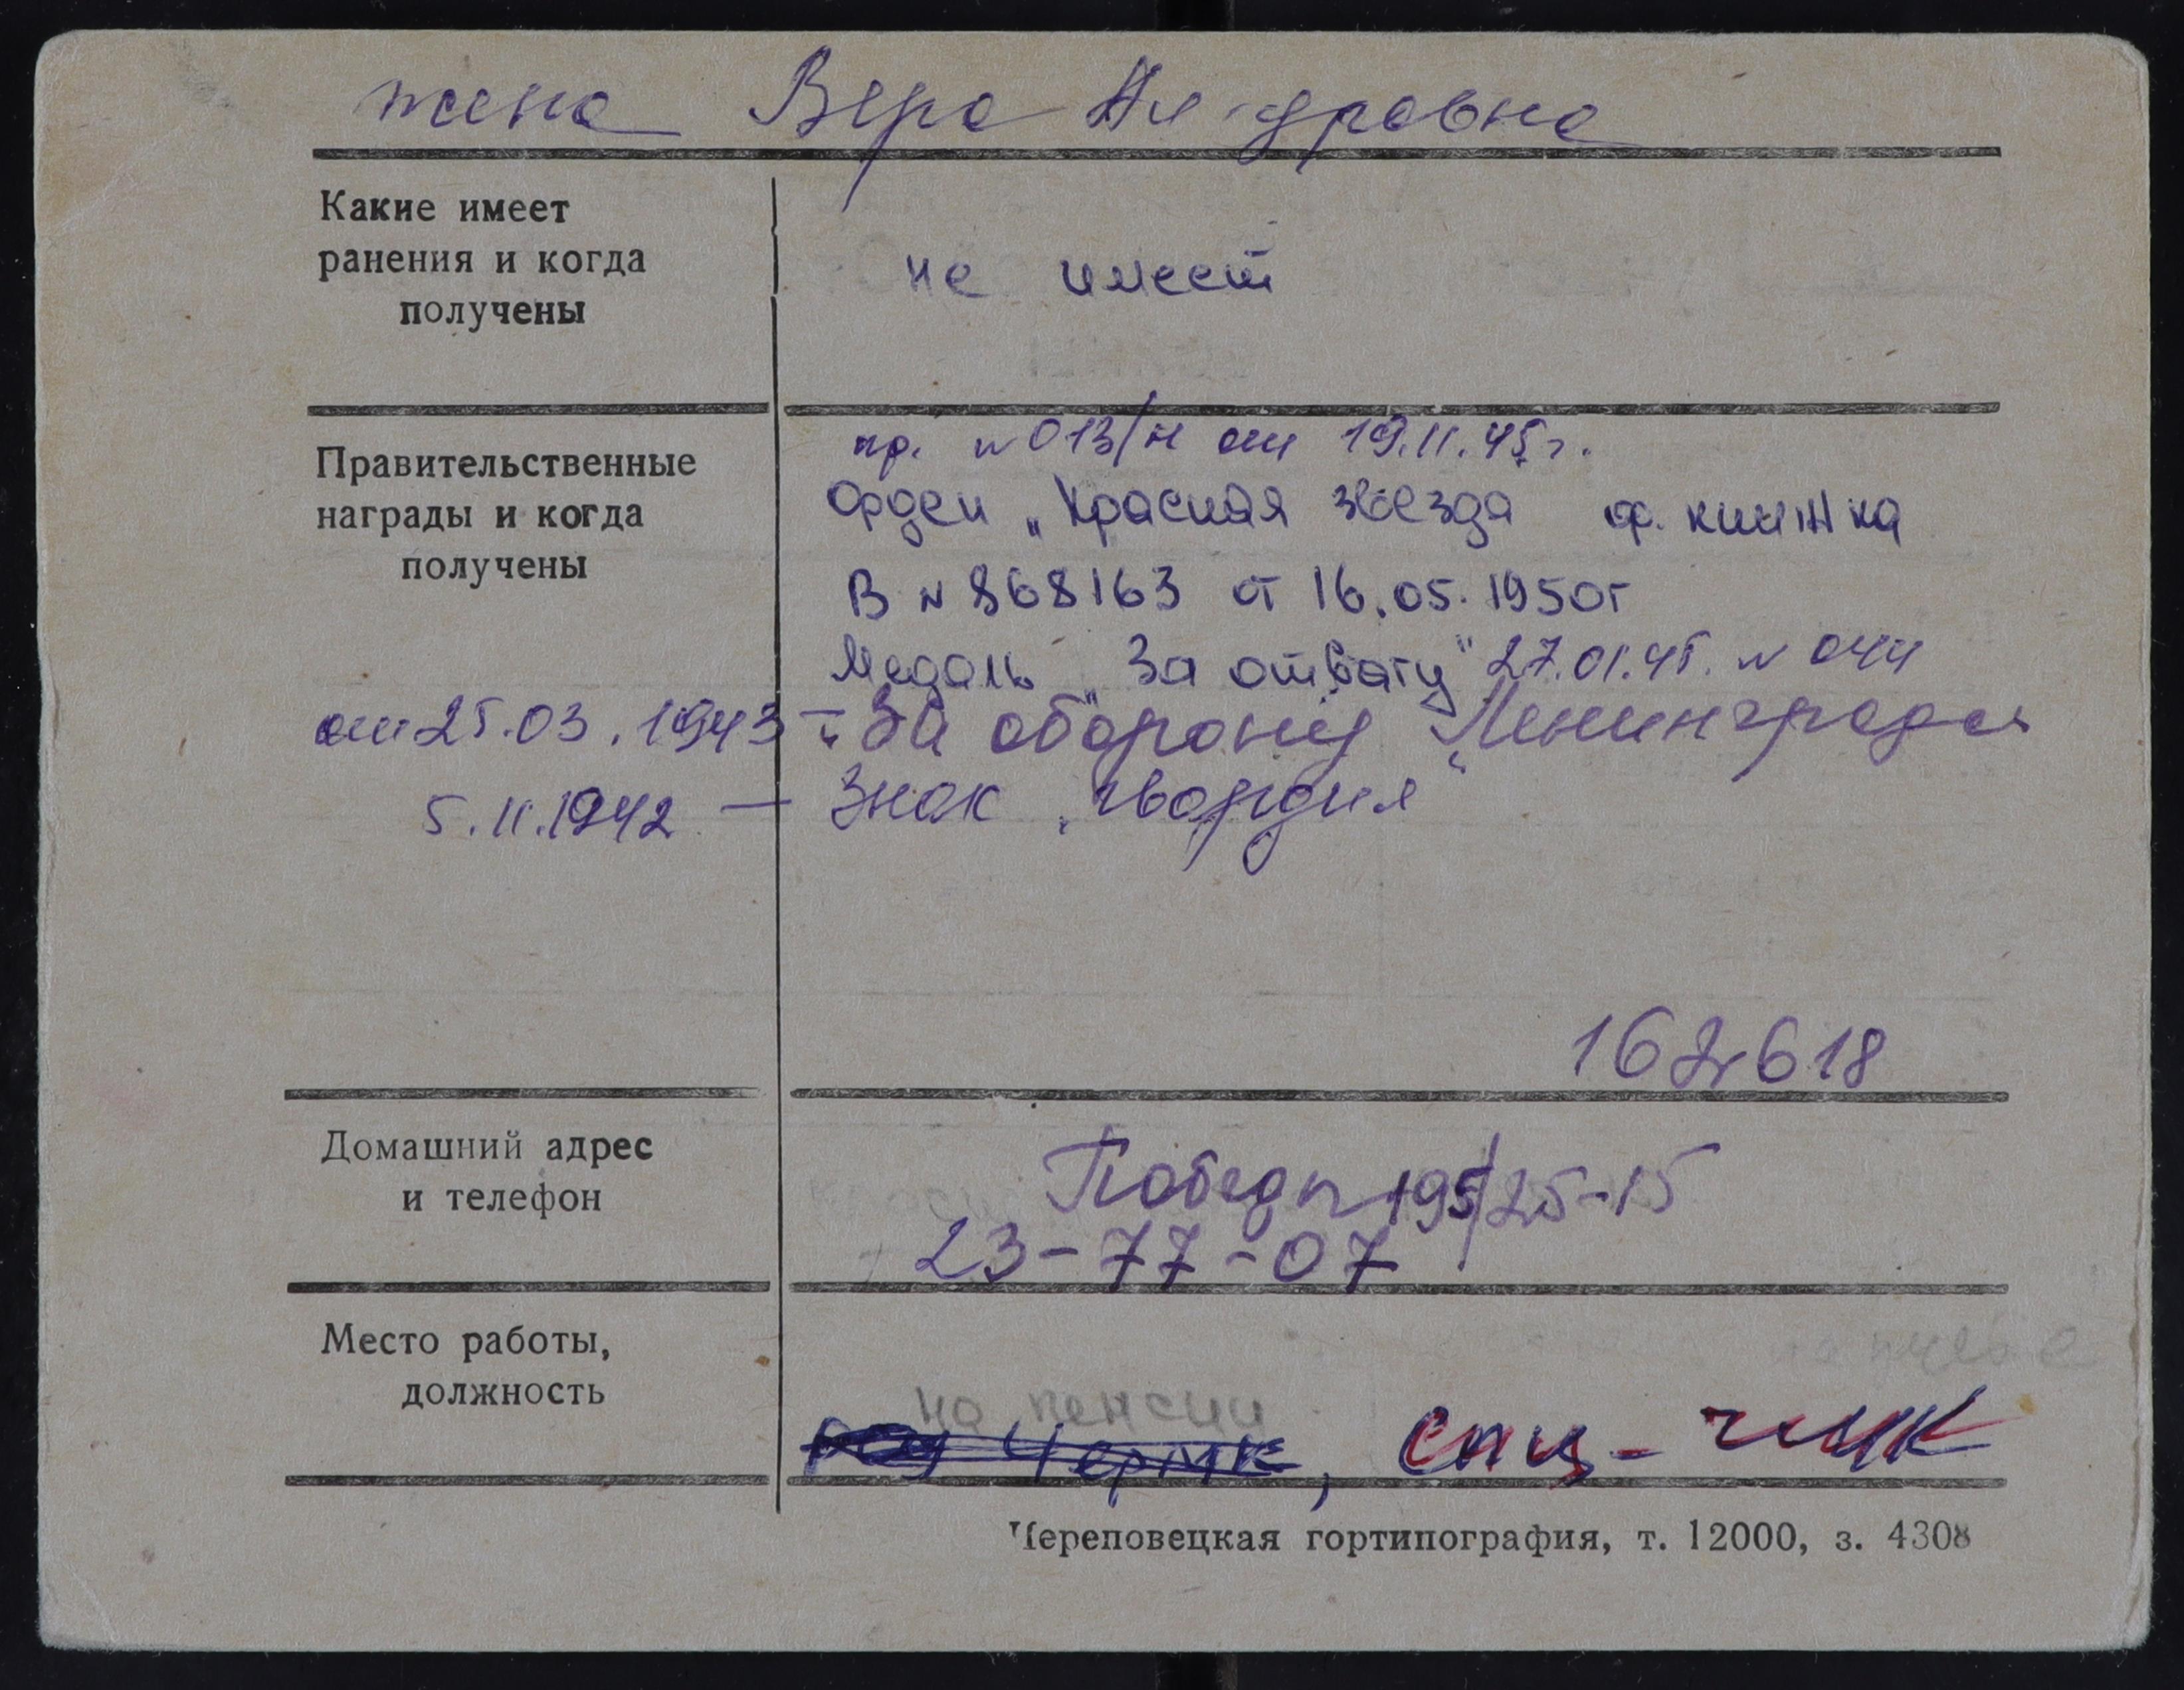 жена Вера Ал-дровна
Какие имеет
ранения и когда
получены
не имеет
Правительственные
награды и когда
получены
пр. № 013/н от 19.11.45г.
Орден „Красная звезда ор. книжка
В № 868163 от 16.05.1950г
Медаль „За отвагу" 27.01.45. № 044
от 25.03.1943 – „За оборону Ленинграда
5.11.1942 — Знак „гвардия"
162618
Домашний адрес
и телефон
Победы 195/25-15
23-77-07
Место работы,
должность
на пенсии
ЧерМК,
Череповецкая гортипография, т. 12000, з. 4308